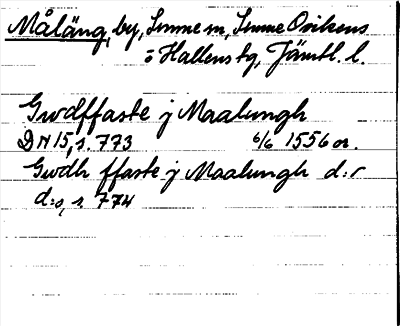 Måläng, by, Semme m, Semme Ovikens
o Hallens tg, Jämtl. l.
Gwdffaste j Maalungh
DN 15, s. 773 6/6 1556 or.
Gwdh ffaste j Maalungh d:r
d:o, s. 774